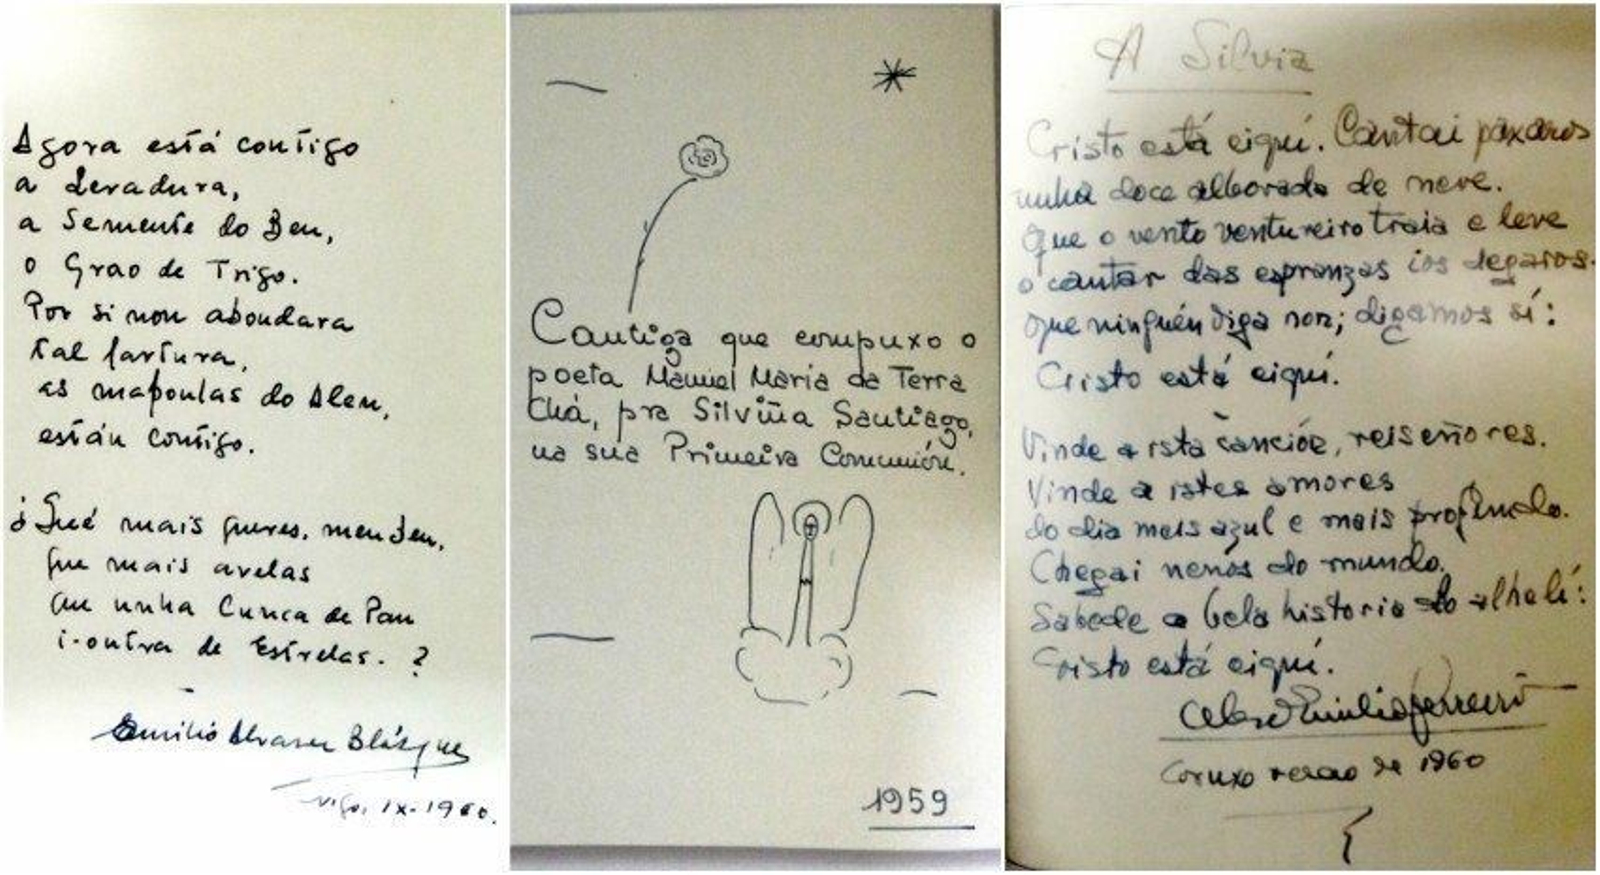 Agora está contigo
a Levadura,
a Semente do Ben,
o Grao de Trigo.
Por si non abondara
tal fartura,
as mapoulas do Alén,
están contigo.
¿Qué mais queres, meu ben,
que mais arelas
que unha Cunca de Pan
i-outra de Estrelas. ?
Emilio Alvarez Blázquez
Vigo, IX-1960.
Cantiga que compuxo o
poeta Manuel María da Terra
Chá, pra Silviña Santiago,
na sua Primeira Comunión.
1959
A Silvia
Cristo está eiquí. Cantai páxaros
unha doce alborada de neve.
Que o vento ventureiro traia e leve
o cantar das espranzas ios degaros.
Que ninguén diga non; digamos sí:
Cristo está eiquí.
Vinde a ista canción, reiseñores.
Vinde a istes amores
do dia mais azul e mais profundo.
Chegai nenos do mundo.
Sabede a bela historia do alhelí:
Cristo está eiquí.
Celso Emilio Ferreiro
Coruxo verao de 1960